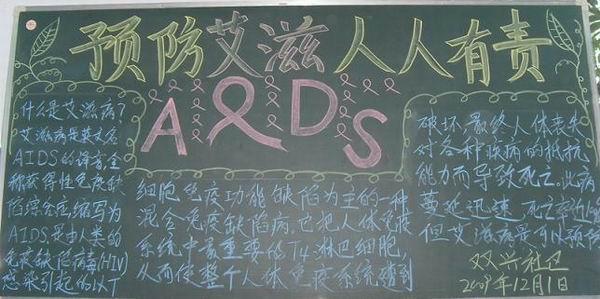 预防艾滋人人有责
AIDS
什么是艾滋病?
艾滋病是英文名
AIDS的译音全
称获得性免疫缺
陷综合症,缩写为
AIDS.是由人类的
免疫缺陷病毒(HIV)
感染引起的以T
细胞免疫功能缺陷为主的一种
混合免疫缺陷病.它把人体免疫
系统中最重要的T4淋巴细胞,
从而使整个人体免疫系统遭到
破坏,最终人体丧失
对各种疾病的抵抗
能力而导致死亡.此病
蔓延迅速,死亡率
但艾滋病是可以预防
双兴社区
2009年12月1日